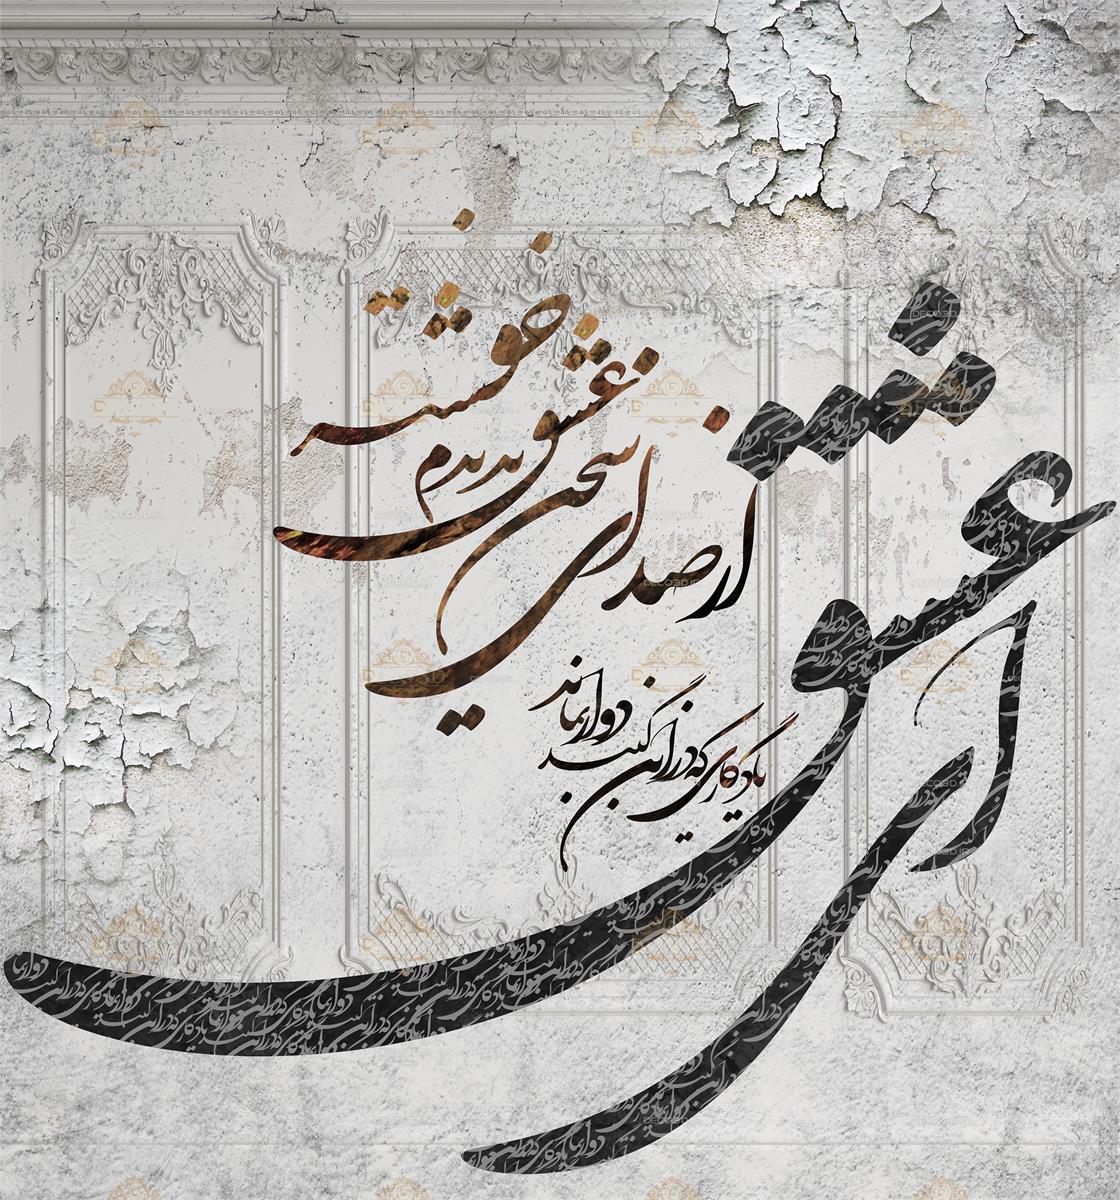 ای عشق
از صدای سخن عشق ندیدم خوشتر
یادگاری که در این گنبد دوار بماند
DECO3D.IR